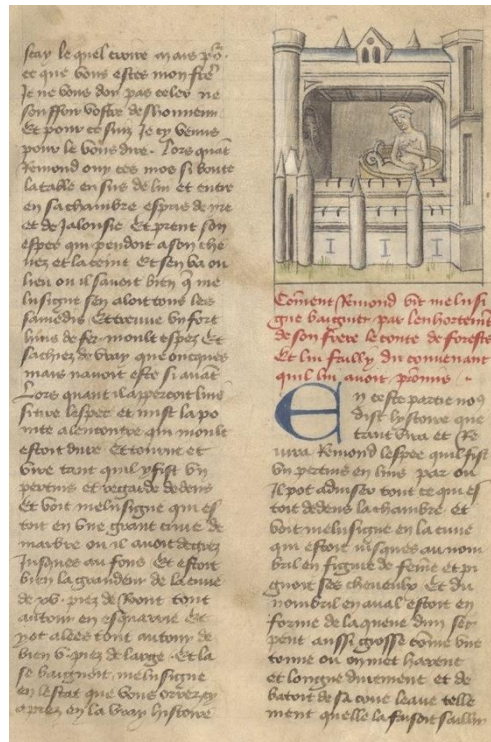 scay le quel croire mais po^r.
ce que vous estes mon frē
Je ne vous doy pas celer ne
souffrir vostre deshonneur
Et pour ce suiz Je cy venus
pour le vous dire. Lors quāt
Remond ouy ces mos si boute
la table en sus de lui et entre
en sa chambre espris de yre
et de Jalousie Et prent son
espee qui pendoit a son che
uez et la ceint Et sen va ou
lieu ou il sauoit bien q̄ me
lusigne sen aloit tous les
samedis Et treuue vn fort
huis de fer moult espez Et
sachiez de vray que oncques
mais nauoit este si auāt
Lors quant il appercoit luis
si tire lespee et mist la po
inte a lencontre qui moult
estoit dure Et tourne et
vire tant quil y fist vn
pertuis et regarde dedens
Et voit melusigne qui es
toit en vne grant cuue de
marbre ou il auoit degrez
Jusques au fons Et estoit
bien la grandeur de la cuue
de xv. piez de Roont tout
autour en esquarrie Et
y ot alees tout autour de
bien v. piez de large. Et la
se baignoit melusigne
en lestat que vous orrez cy
apres en la vraye histoire
Cōment Remond vit melusi
gne baignier par lenhortemēt
de son frere le conte de forests
Et lui failly du conuenant
quil lui auoit promis.
En ceste partie no9
dist lystoire que
tant vira et Re
uira Remond lespee quil fist
vn pertuis en luis par ou
Il pot aduiser tout ce qui es
toit dedens la chambre et
voit melusigne en la cuue
qui estoit iusques au nom
bril en figure de feme et pi
gnoit ses cheueulx Et du
nombril en aual estoit en
forme de la queue dun ser
pent aussi grosse cōme vne
tonne ou on met harenc
et longue durement et de
batoit de sa coue leaue telle
ment quelle la faisoit saillir